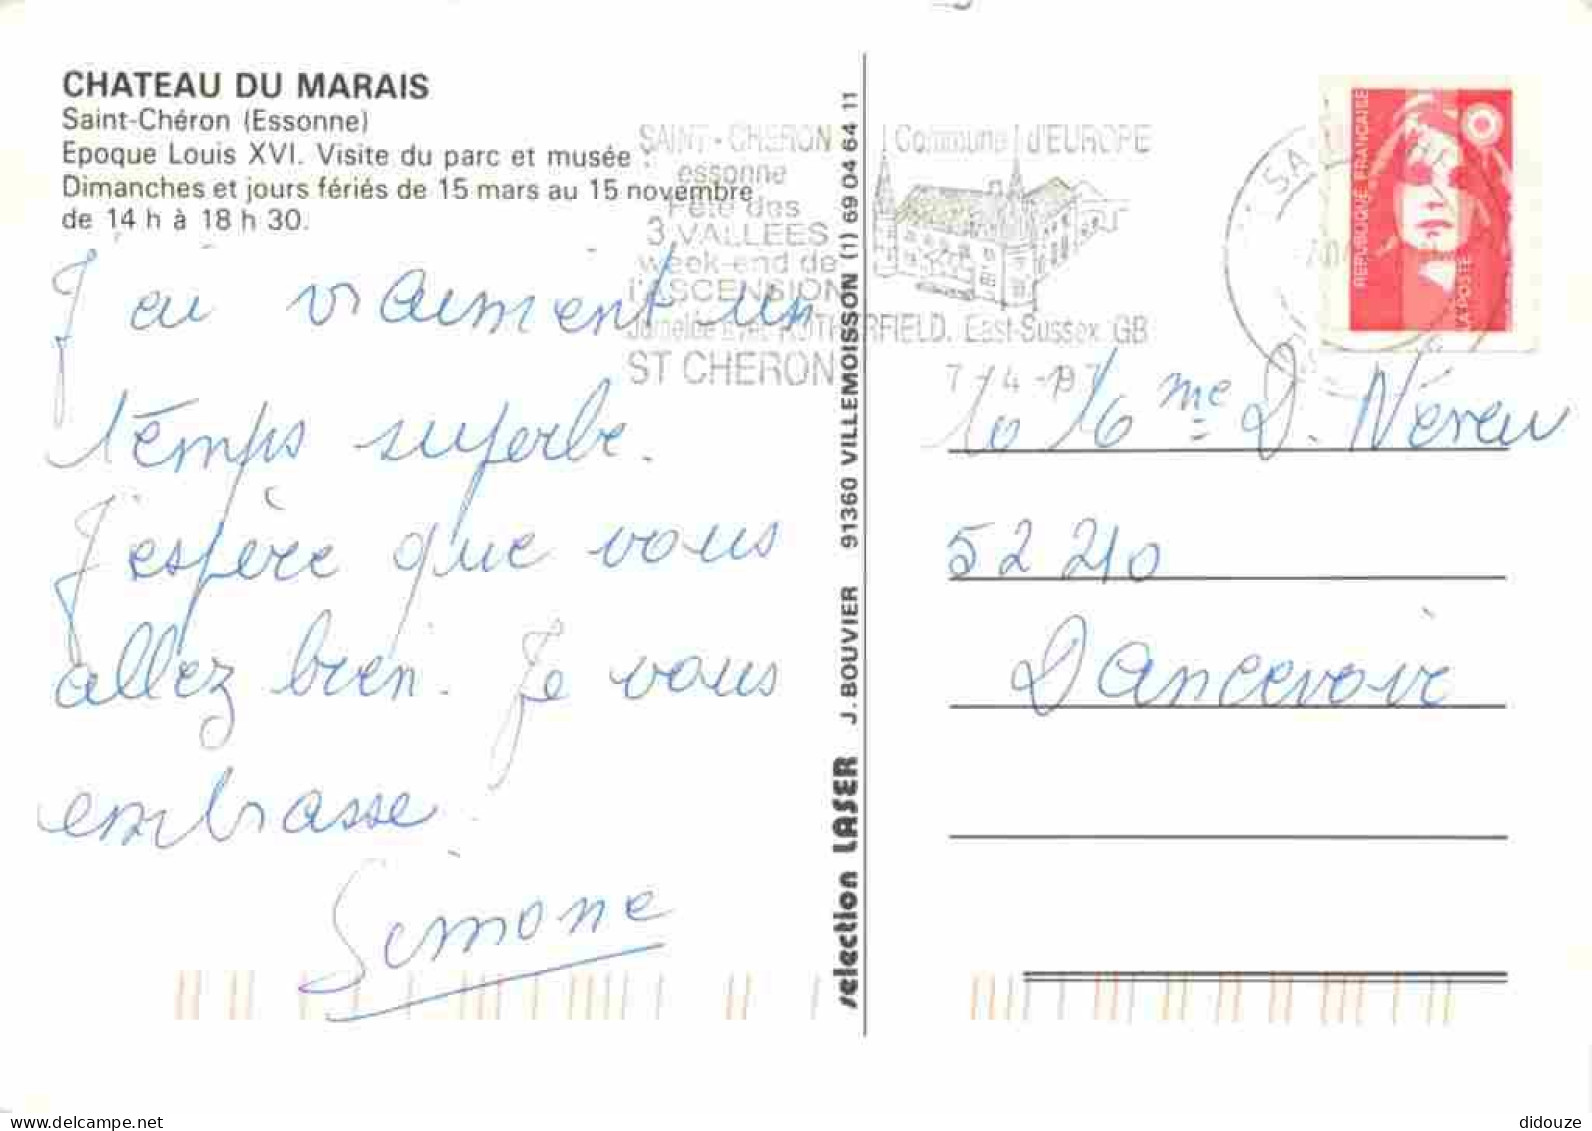 CHATEAU DU MARAIS
Saint-Chéron (Essonne)
Epoque Louis XVI. Visite du parc et musée :
Dimanches et jours fériés de 15 mars au 15 novembre
de 14 h à 18 h 30.
J'ai vraiment un
temps superbe.
J'espère que vous
allez bien. Je vous
embrasse.
Simone
selection LASER J. BOUVIER 91360 VILLEMOISSON (1) 69 04 64 11
SAINT-CHERON Commune d'EUROPE
essonne
Fête des
3 VALLEES
week-end de
l'ASCENSION
Jumelée avec ROTHERFIELD. East-Sussex GB
ST CHERON 7-4-97
REPUBLIQUE FRANÇAISE
LA POSTE
Mme D. Néreu
52210
Dancevoir
delcampe.net
didouze